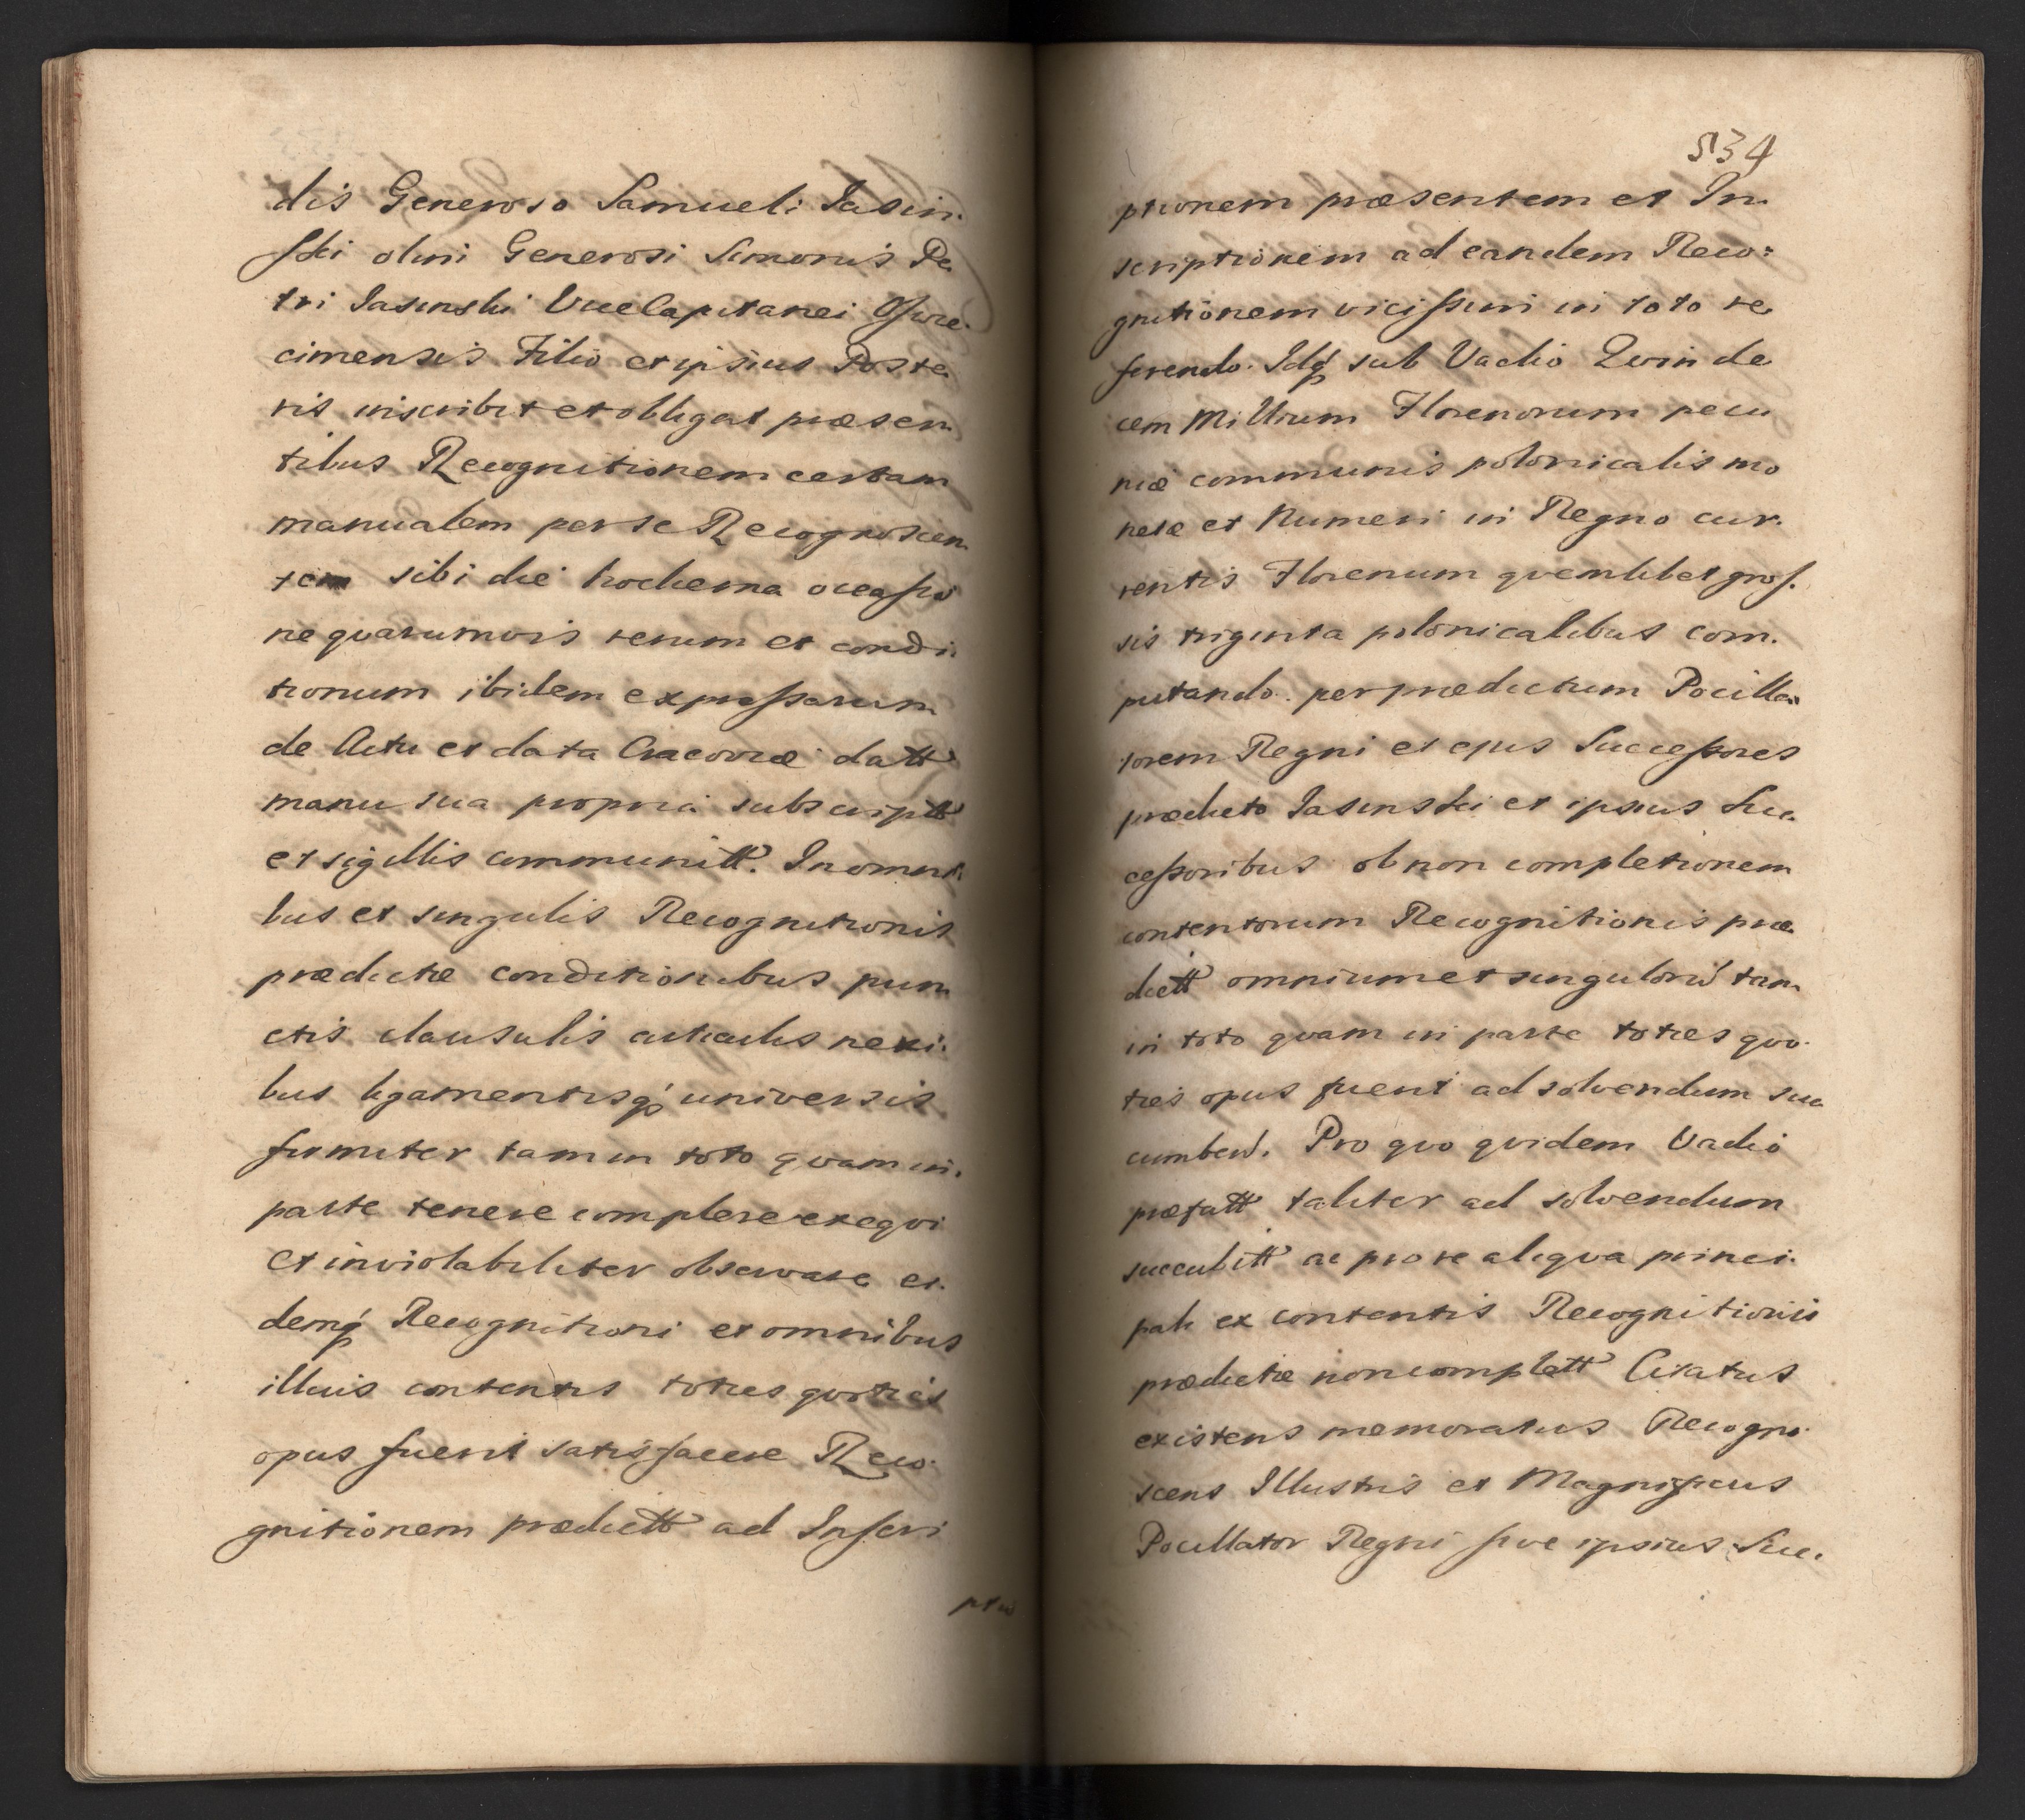 dis Generoso Samueli Jasin-
ski olim Generosi Simonis Pe
tri Jasinski Vice Capitanei Oswie-
cimensis Filio et ipsius Poste
ris inscribit et obligat præsen
tibus Recognitionem certam
manualem per se Recognoscen
tem sibi die hodierna occasio
ne quarumvis rerum et condi
tionum ibidem expressarum
de Actu et data Cracoviæ datt
manu sua propria subscriptt
et sigillis communitt. In omni
bus et singulis Recognitionis
prædictæ conditionibus pun
ctis clausulis articulis nexi-
bus ligamentisq universis
firmiter tam in toto quam in
parte tenere complere exequi
et inviolabiliter observare ei-
demq Recognitioni et omnibus
illius contentis toties quoties
opus fuerit satisfacere Reco-
gnitionem prædictt ad Inscri
ptio
534
ptionem præsentem et In-
scriptionem ad eandem Reco:
gnitionem vicissim in toto re
ferendo. Idq sub Vadio Quinde
cem Millium Florenorum pecu
niæ communis polonicalis mo
netæ et Numeri in Regno cur-
rentis Florenum quemlibet gros-
sis triginta polonicalibus com-
putando. per prædictum Pocilla-
torem Regni et ejus Successores
prædicto Jasinski et ipsius Suc-
cessoribus ob non completionem
contentorum Recognitionis præ-
dictt omnium et singulorū tam
in toto quam in parte toties quo-
ties opus fuerit ad solvendum suc
cumben. Pro quo quidem Vadio
præfatt taliter ad solvendum
succubitt ac pro re aliqua princi-
pali ex contentis Recognitionis
prædictæ non complett Citatus
existens memoratus Recogno-
scens Illustris et Magnificus
Pocillator Regni sive ipsius Suc-